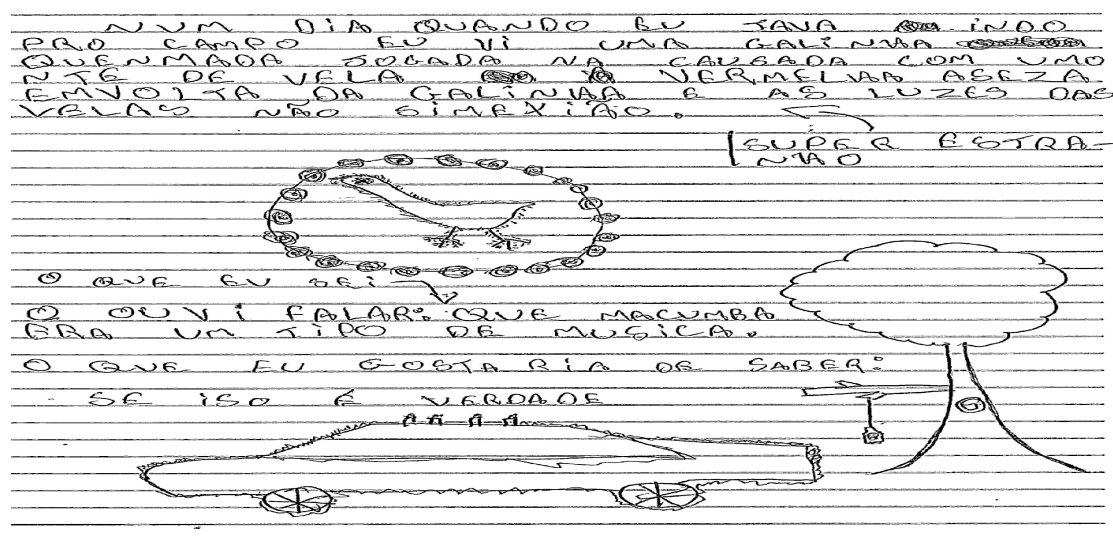 NUM DIA QUANDO EU TAVA INDO
PRO CAMPO EU VI UMA GALINHA
QUENMADA JOGADA NA CAUSADA COM UMO
NTE DE VELA VERMELHA ASEZA
EMVOLTA DA GALINHA E AS LUZES DAS
VELAS NÃO SIMEXIÃO.
SUPER ESTRA-
NHO
O QUE EU SEI
O OUVI FALAR: QUE MACUMBA
ERA UM TIPO DE MUSICA.
O QUE EU GOSTARIA DE SABER:
SE ISO É VERDADE